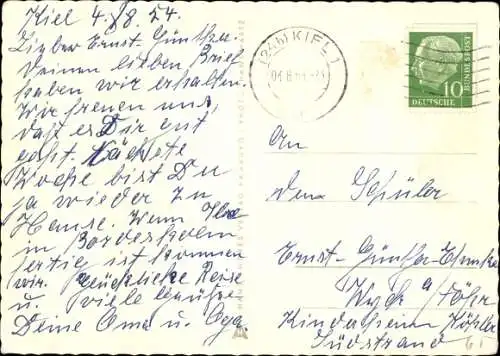 Kiel 4./8. 54.
Lieber Ernst-Günther.
Deinen lieben Brief
haben wir erhalten.
Wir freuen uns,
daß es Dir gut
geht. Nächste
Woche bist Du
ja wieder zu
Hause. Wenn
in Bordesholm
fertig ist kommen
wir. Glückliche Reise
u. viele Grüße
Deine Oma u. Opa.
(24b) KIEL 1
DEUTSCHE
BUNDESPOST
10
An
den Schüler
Ernst-Günther
Wyk a/Föhr
Kinderheim Köhler
Südstrand